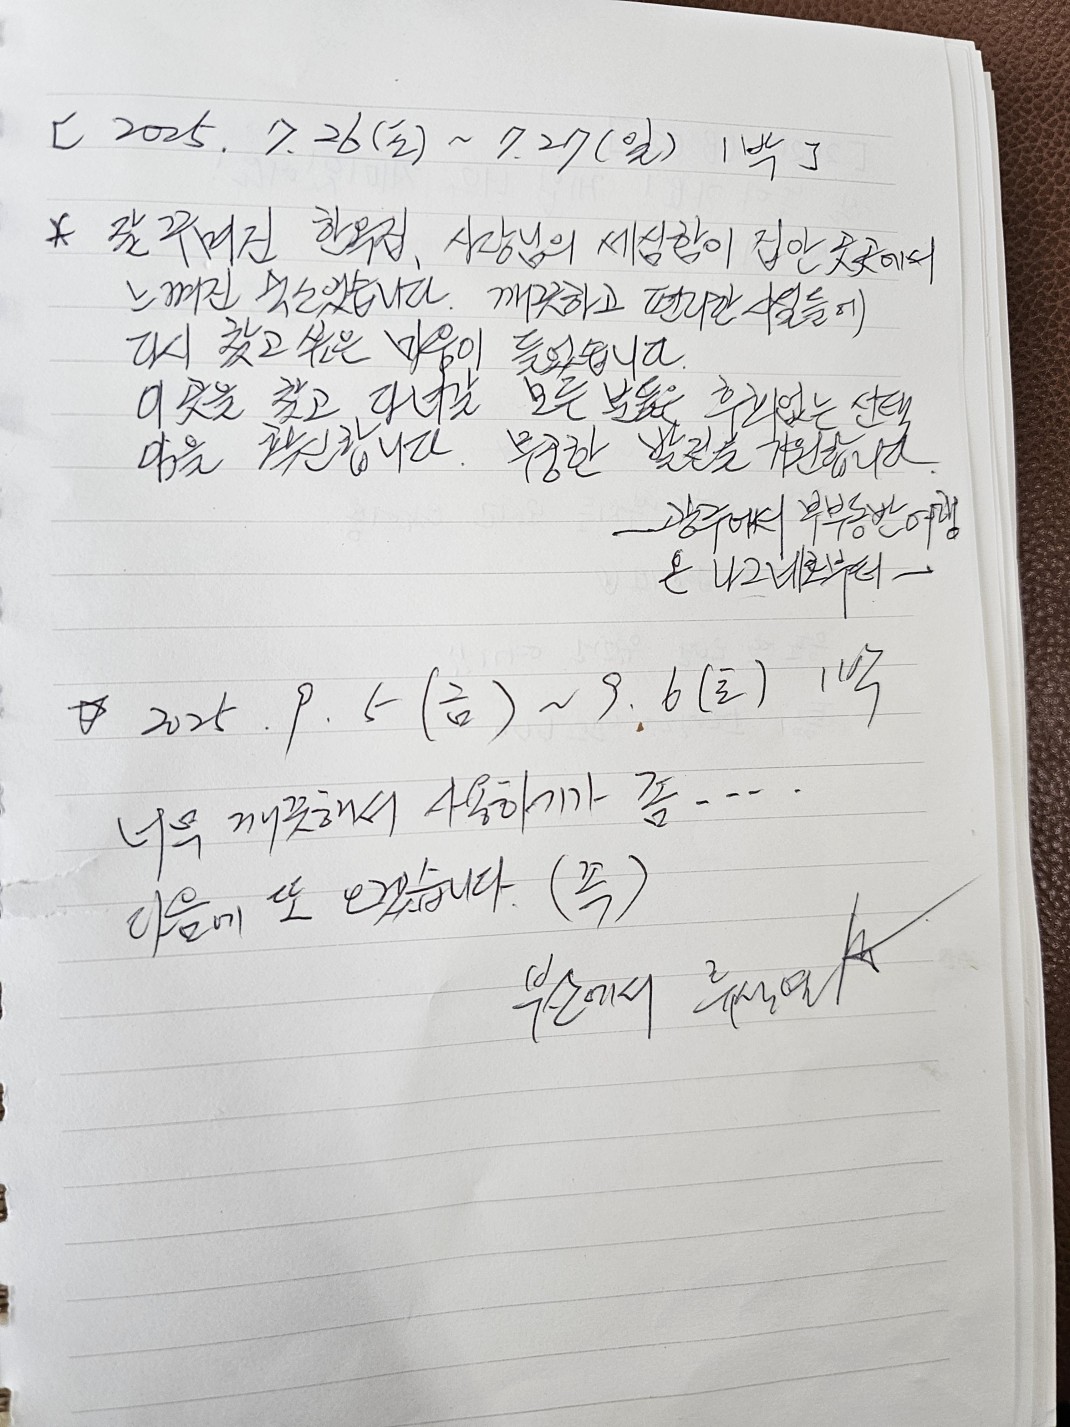 [ 2025. 7. 26(토) ~ 7.27(일) 1박 ]
* 잘 꾸며진 한옥집, 사장님의 세심함이 집안 곳곳에서
느껴진 곳이었습니다. 깨끗하고 편리한 시설들에
다시 찾고 싶은 마음이 들었습니다.
이곳을 찾고, 다녀갈 모든 분들은 후회없는 선택
임을 확신합니다. 무궁한 발전을 기원합니다.
- 광주에서 부부동반여행
온 나그네로부터 -
2025. 9. 5 (금) ~ 9. 6 (토) 1박
너무 깨끗해서 사용하기가 좀- - - - .
다음에 또 오겠습니다. (꼭)
부산에서